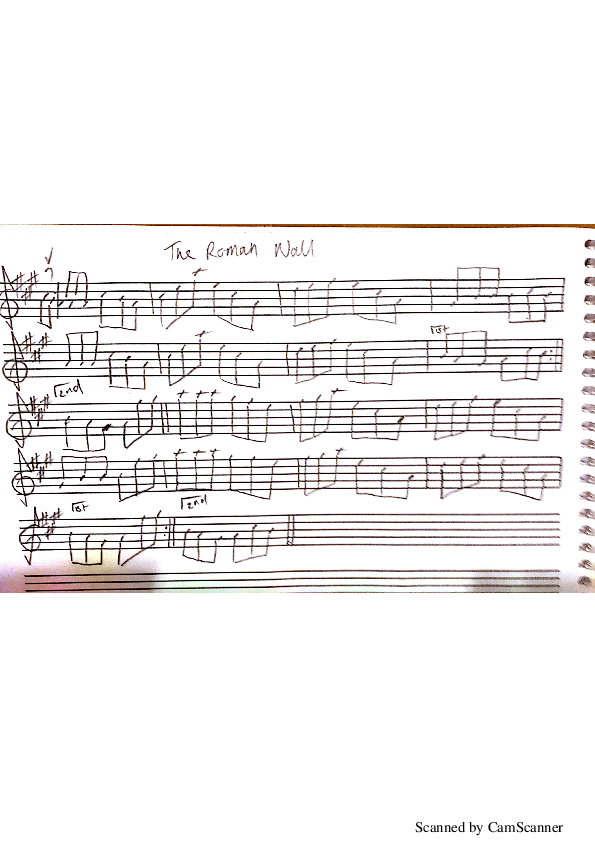 The Roman Wall
1st
2nd
1st
2nd
Scanned by CamScanner